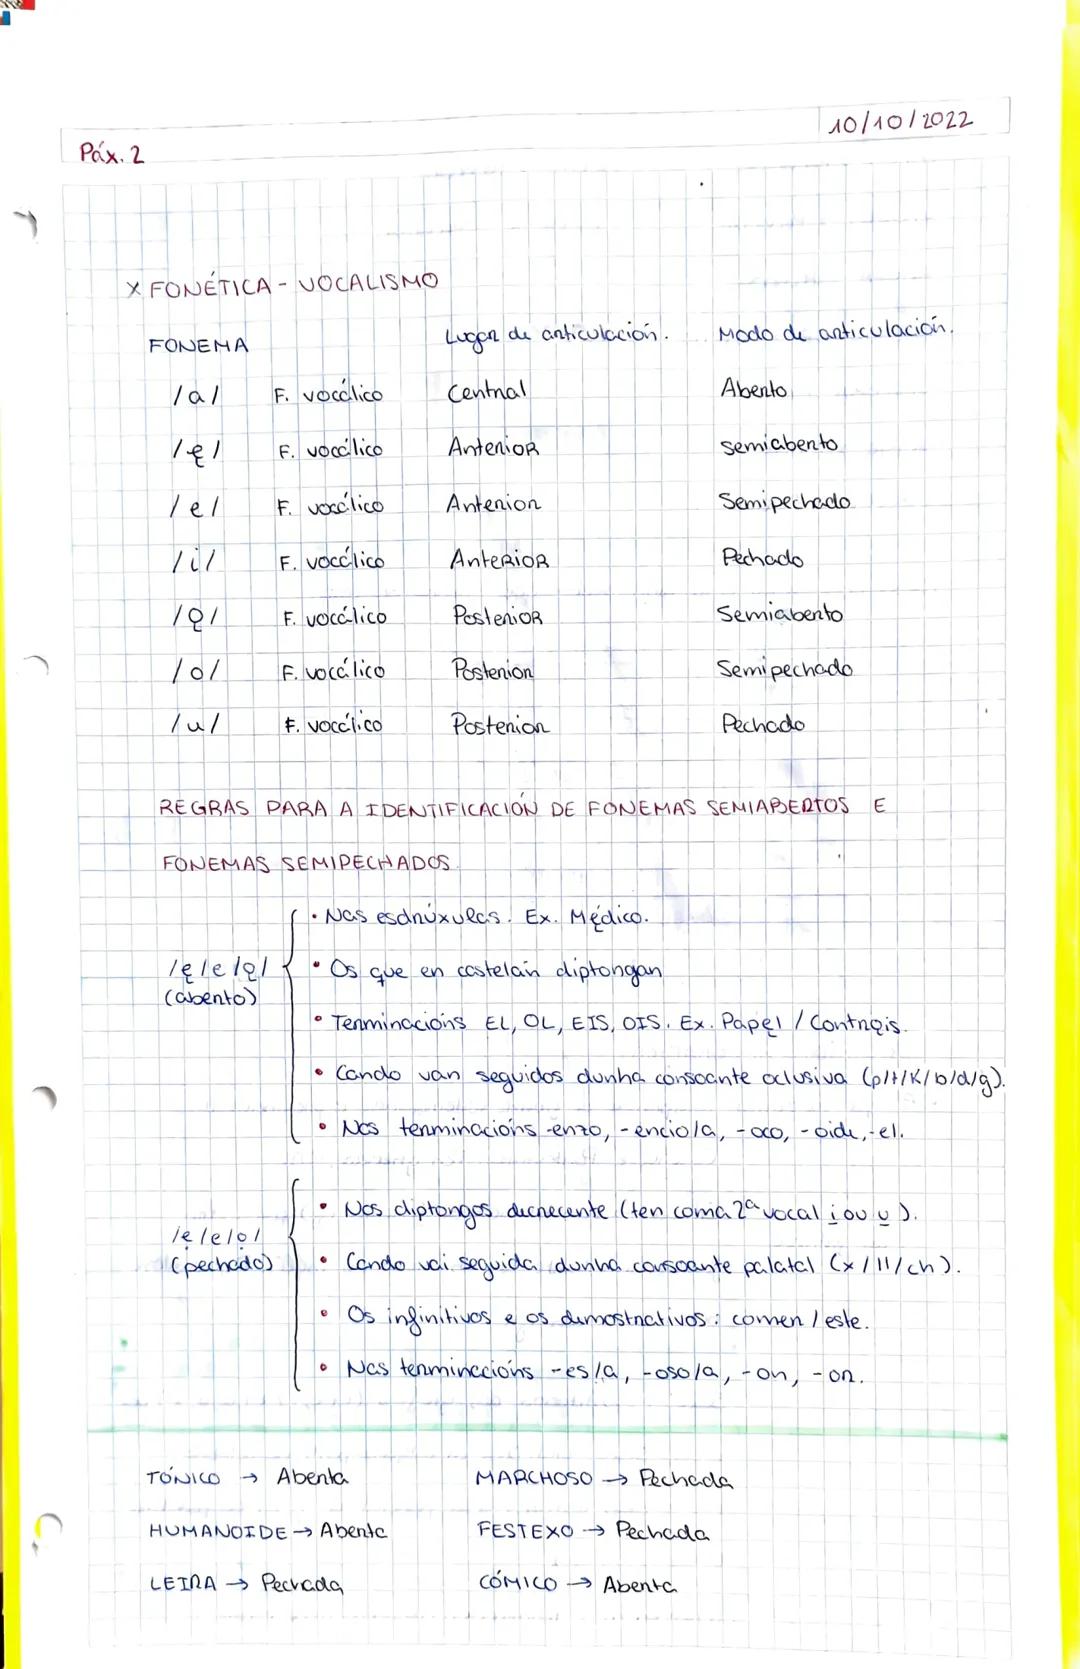 10/10/2022
Páx. 2
X FONÉTICA - VOCALISMO
FONEMA Lugar de articulación. Modo de articulación.
/a/ F. vocálico Central Aberto
/ę/ F. vocálico Anterior semiaberto
/e/ F. vocálico Anterior Semipechado
/i/ F. vocálico Anterior Pechado
/ǫ/ F. vocálico Posterior Semiaberto
/o/ F. vocálico Posterior Semipechado
/u/ F. vocálico Posterior Pechado
REGRAS PARA A IDENTIFICACIÓN DE FONEMAS SEMIABERTOS E
FONEMAS SEMIPECHADOS
/ę/e/ǫ/
(aberto)
• Nas esdrúxulas. Ex. Mędico.
• Os que en castelán diptongan
• Terminacións EL, OL, EIS, OIS. Ex. Papęl / Contrǫis.
• Cando van seguidos dunha consoante oclusiva (p/t/k/b/d/g).
• Nas terminacións -enzo, -encio/a, -oco, -oide, -el.
/ẹ/e/ọ/
(pechado)
• Nos diptongos decrecente (ten coma 2ª vocal i ou u).
• Cando vai seguida dunha consoante palatal (x/ll/ch).
• Os infinitivos e os demostrativos: comer / este.
• Nas terminacións -es/a, -oso/a, -on, -or.
TÓNICO → Aberta MARCHOSO → Pechada
HUMANOIDE → Aberta FESTEXO → Pechada
LEIRA → Pechada CÓMICO → Aberta